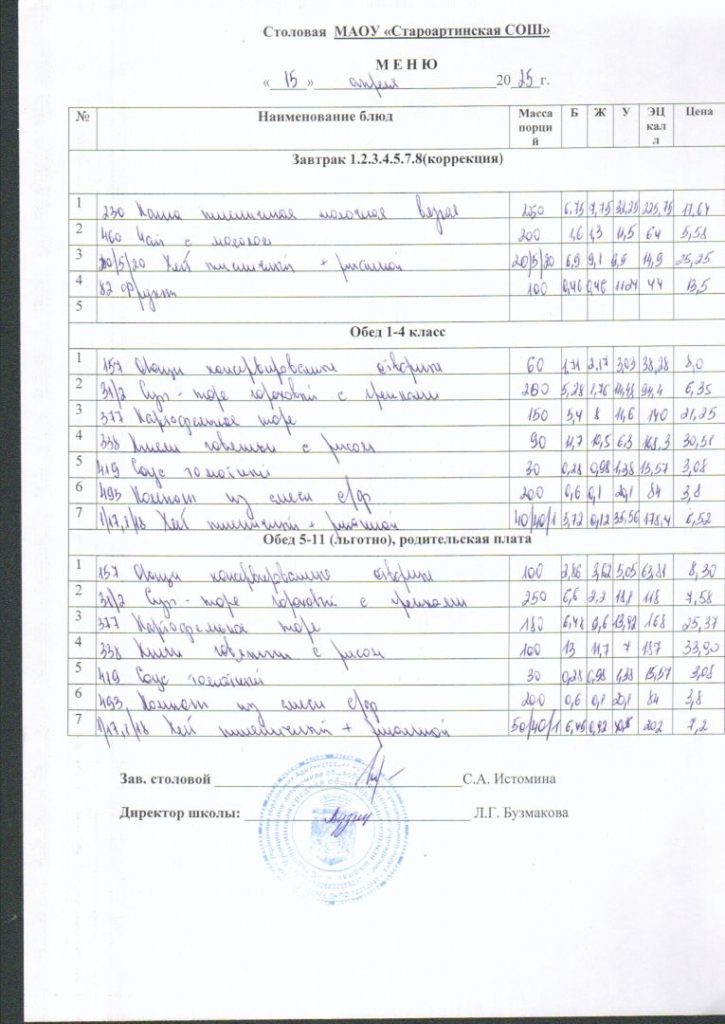 Столовая МАОУ «Староартинская СОШ»
М Е Н Ю
« 15 » апреля 2025 г.
№ Наименование блюд Масса порций Б Ж У ЭЦ кал л Цена
Завтрак 1.2.3.4.5.7.8(коррекция)
1 230 Каша пшеничная молочная 250 6,75 7,75 225,75 17,64
2 460 Чай с молоком 200 1,6 1,3 11,5 64 5,58
3 20/5/20 Хлеб + 20/5/20 6,9 9,1 9,9 25,25
4 82 Фрукт 100 0,46 0,46 44 13,5
5
Обед 1-4 класс
1 157 Овощи консервированные отварные 60 1,71 2,17 3,03 38,28 8,0
2 31/2 Суп - пюре гороховый с гренками 200 5,28 1,76 94,4 6,35
3 377 Картофельное пюре 150 5,4 8 11,6 140 21,25
4 338 говяжьи с рисом 90 11,7 10,5 6,3 168,3 30,51
5 419 Соус томатный 30 0,28 0,98 1,38 15,57 3,08
6 493 Компот из смеси с/ф 200 0,6 0,1 20,1 84 3,8
7 Хлеб пшеничный + ржаной 40/40/1 3,72 0,12 35,56 178,4 6,52
Обед 5-11 (льготно), родительская плата
1 157 Овощи консервированные отварные 100 2,86 3,62 5,05 63,81 8,30
2 31/2 Суп - пюре гороховый с гренками 250 6,6 2,2 118 7,58
3 377 Картофельное пюре 180 6,48 9,6 13,92 168 25,37
4 338 говяжьи с рисом 100 13 11,7 7 187 33,90
5 419 Соус томатный 30 0,28 0,98 1,38 15,57 3,08
6 493 Компот из смеси с/ф 200 0,6 0,1 20,1 84 3,8
7 Хлеб пшеничный + ржаной 50/40/1 202 7,2
Зав. столовой С.А. Истомина
Директор школы: Л.Г. Бузмакова